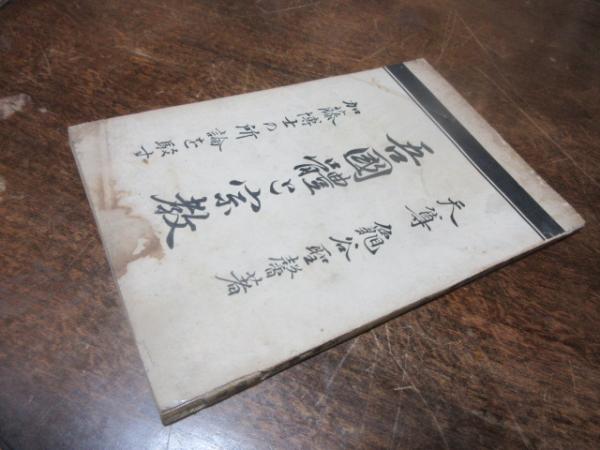 加藤博士の所論を駁す
吾國體と宗教
天尊 龜谷聖馨著